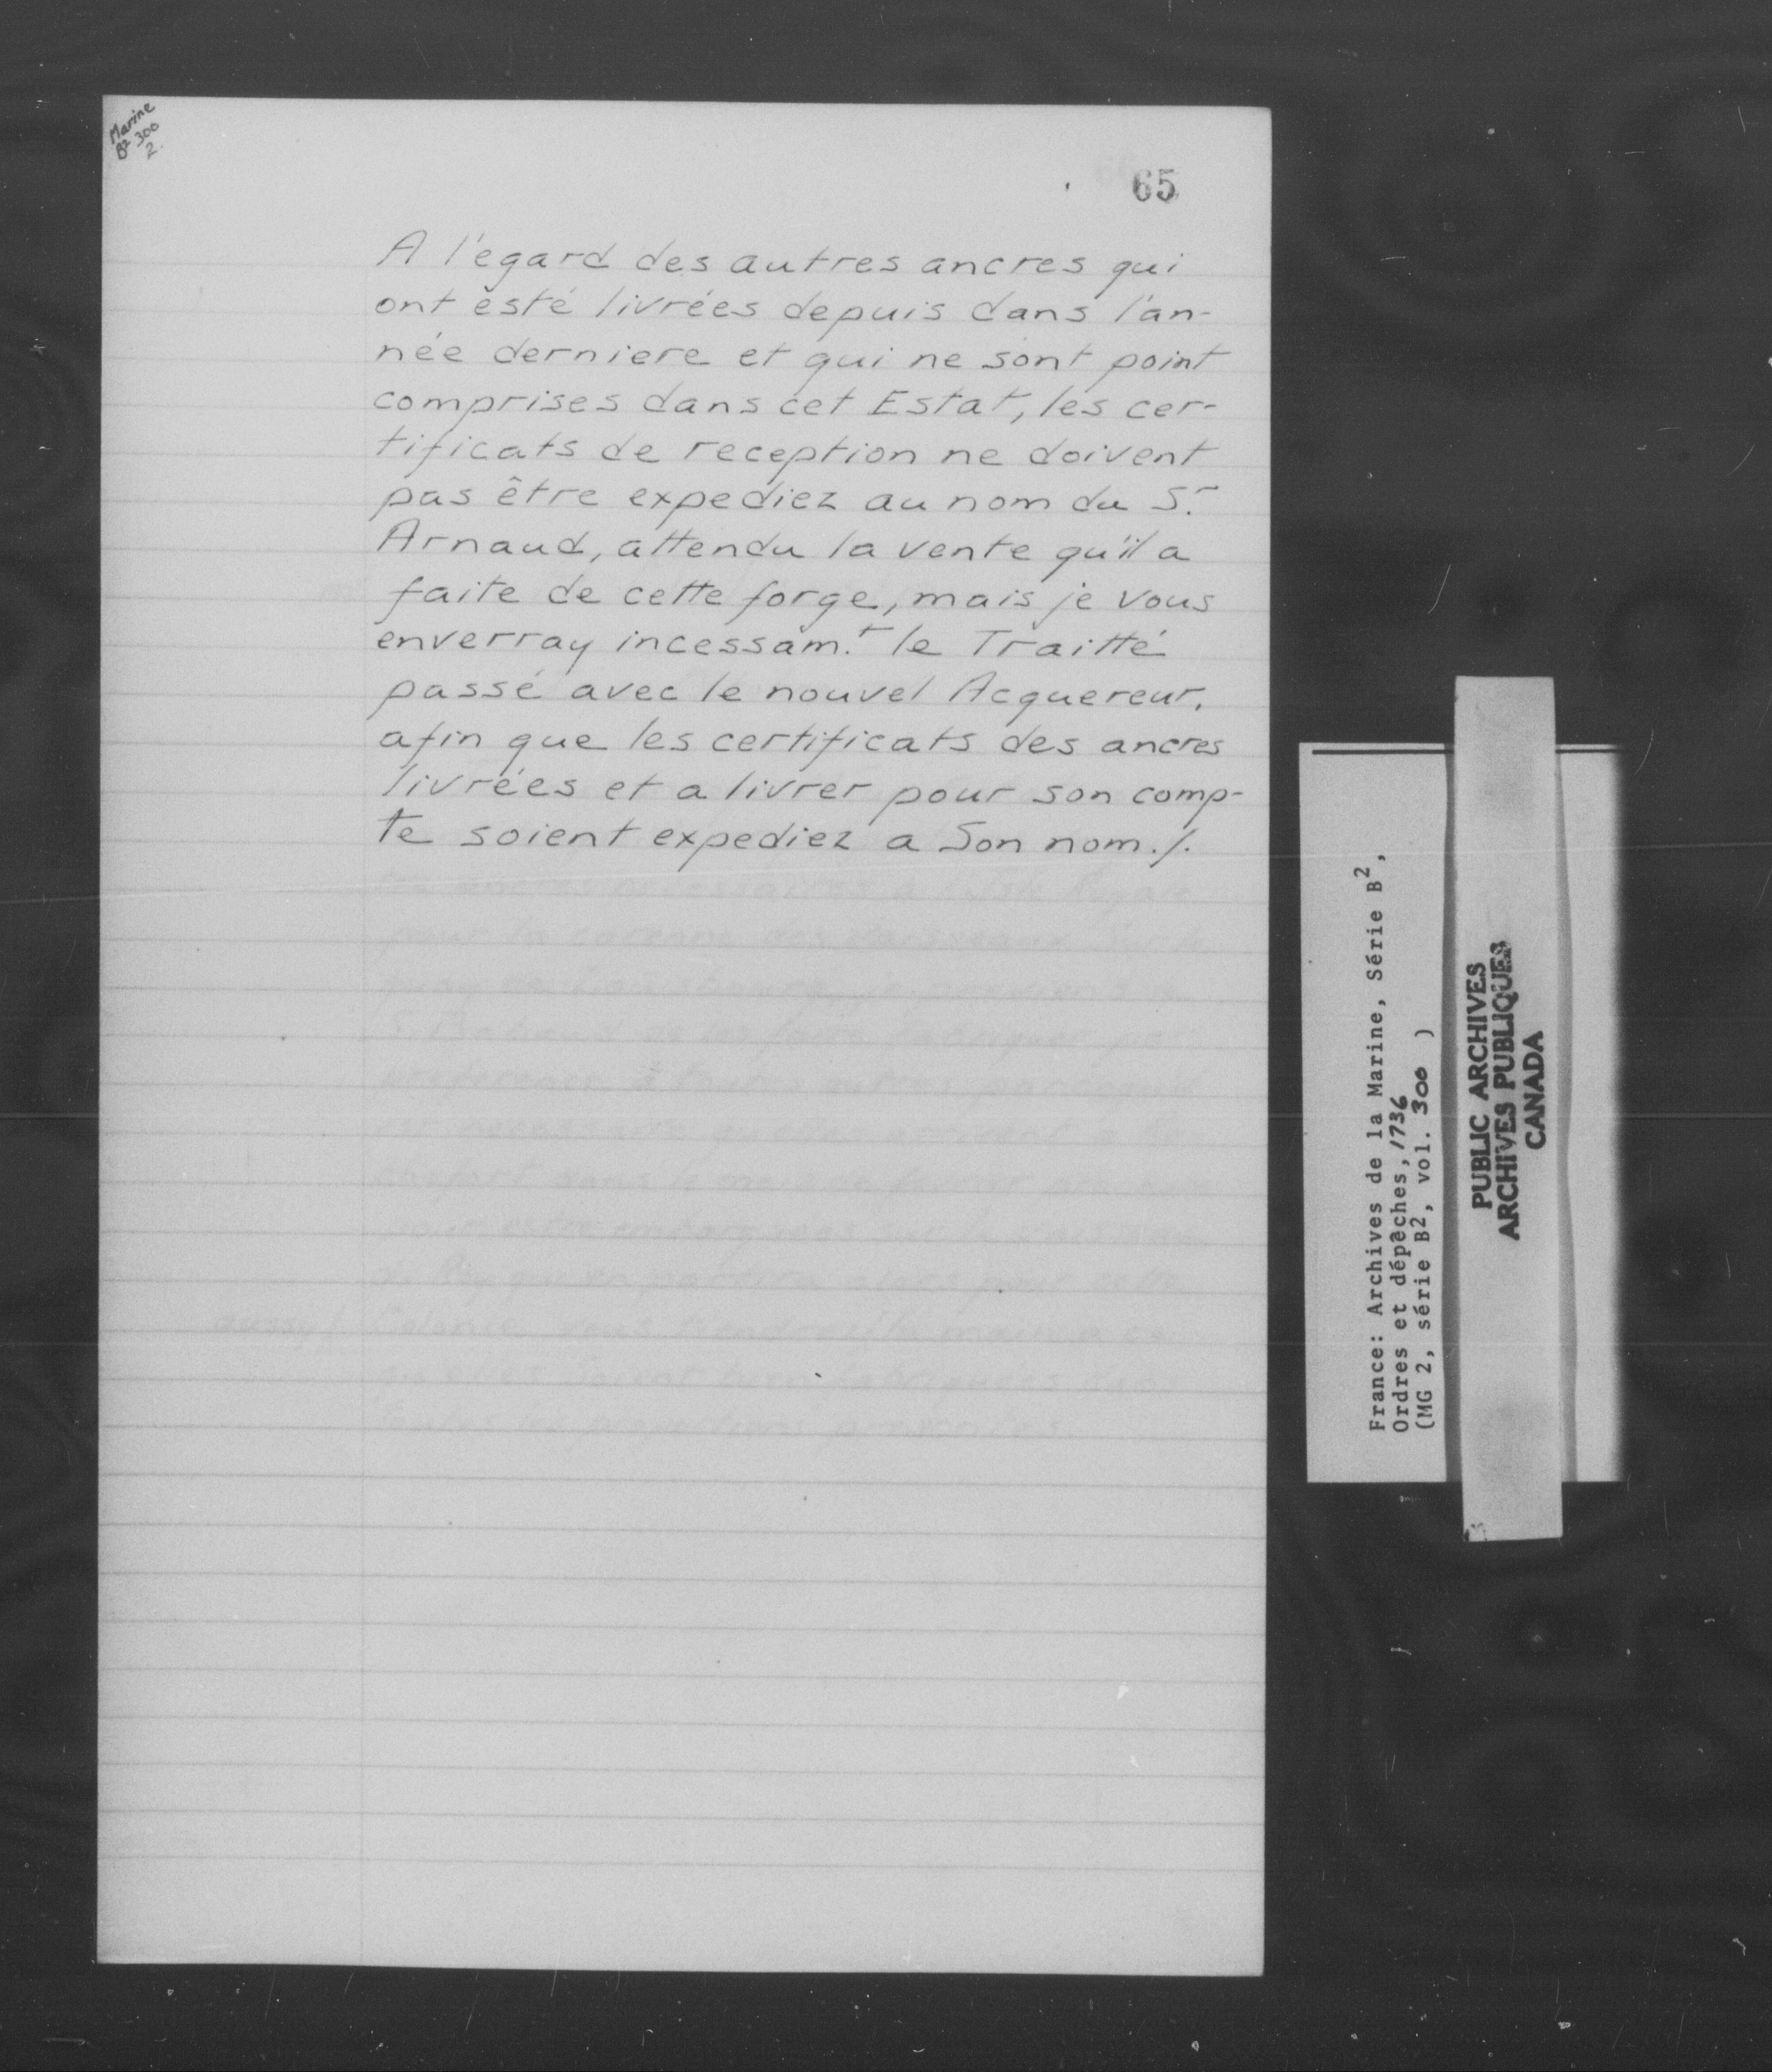 Marine
B² 300
2.
65
A l'egard des autres ancres qui
ont esté livrées depuis dans l'an-
née derniere et qui ne sont point
comprises dans cet Estat, les cer-
tificats de reception ne doivent
pas être expediez au nom du S.r
Arnaud, attendu la vente qu'il a
faite de cette forge, mais je vous
enverray incessam.t le Traitté
passé avec le nouvel Acquereur,
afin que les certificats des ancres
livrées et a livrer pour son comp-
te soient expediez a Son nom./.
France: Archives de la Marine, Série B²,
Ordres et dépêches, 1736
(MG 2, série B2, vol. 300 )
PUBLIC ARCHIVES
ARCHIVES PUBLIQUES
CANADA